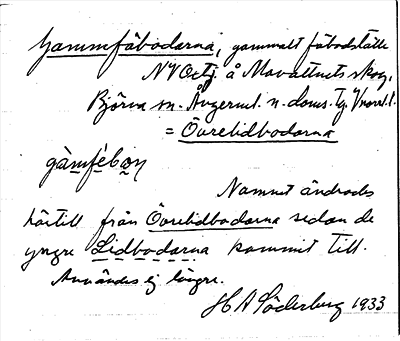 Gammfäbodarna, gammalt fäbodställe
NV Ortj. å Movattnets skog,
Björna sn. Ångerml. n. doms. tg. Vnorrl. l.
= Övrelidbodarna
gàmfèbọn
Namnet ändrades
härtill från Övrelidbodarna sedan de
yngre Lidbodarna kommit till.
Användes ej längre.
H A Söderberg 1933